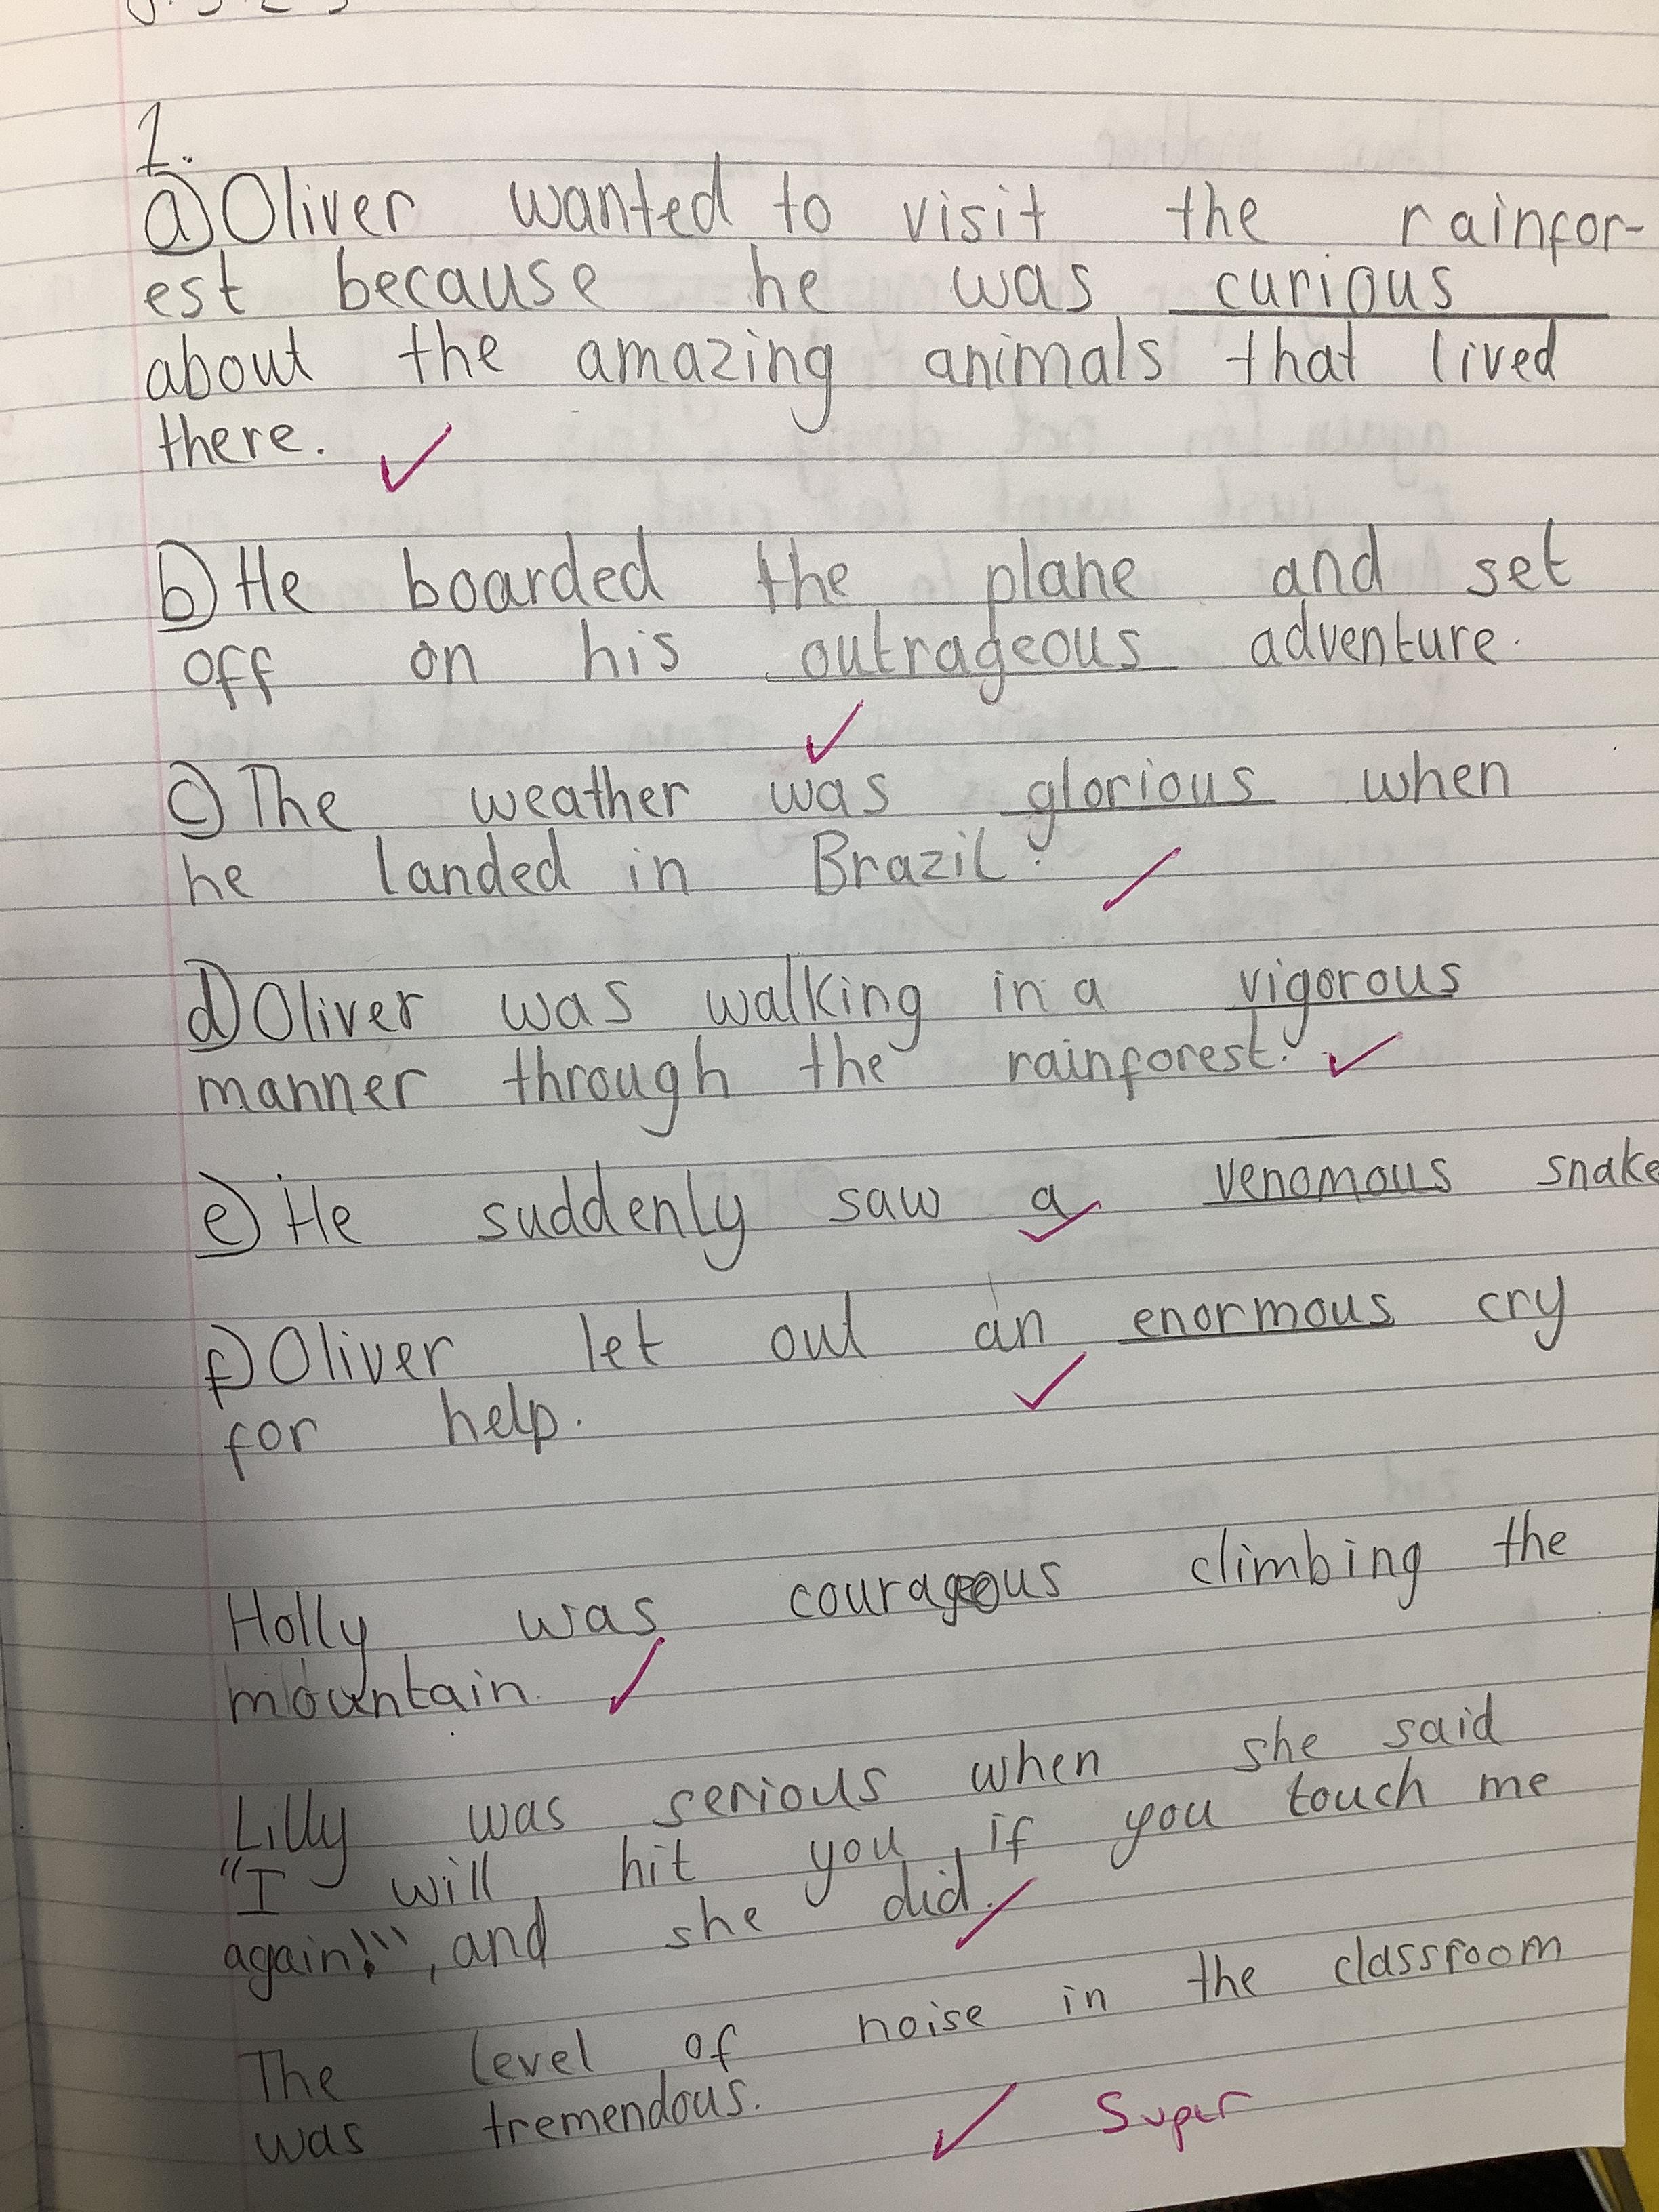 1.
a) Oliver wanted to visit the rainfor-
est because he was curious
about the amazing animals that lived
there.
b) He boarded the plane and set
off on his outrageous adventure.
c) The weather was glorious when
he landed in Brazil.
d) Oliver was walking in a vigorous
manner through the rainforest.
e) He suddenly saw a venomous snake
f) Oliver let out an enormous cry
for help.
Holly was courageous climbing the
mountain.
Lilly was serious when she said
"I will hit you if you touch me
again!", and she did.
The level of noise in the classroom
was tremendous.
Super